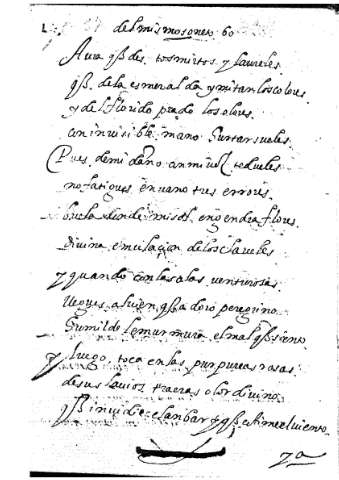 del mismo soneto 60
Aura q̃ destos mirtos y laureles
q̃ de la esmeralda ymitan los colores
y del florido prado los olores
con inuisible mano hurtar sueles
Pues de mi daño
no fatigues en vano tus errores
buela donde mi sol engendra flores
diuina emulaçion de los claueles
y quando con las alas venturosas
llegues al vien q̃ adoro peregrino
humilde le murmura el mal q̃ siento
y luego toca en las purpureas rosas
de sus lauios traeras olor diuino
q̃ inuidie el anbar y q̃ estime el viento